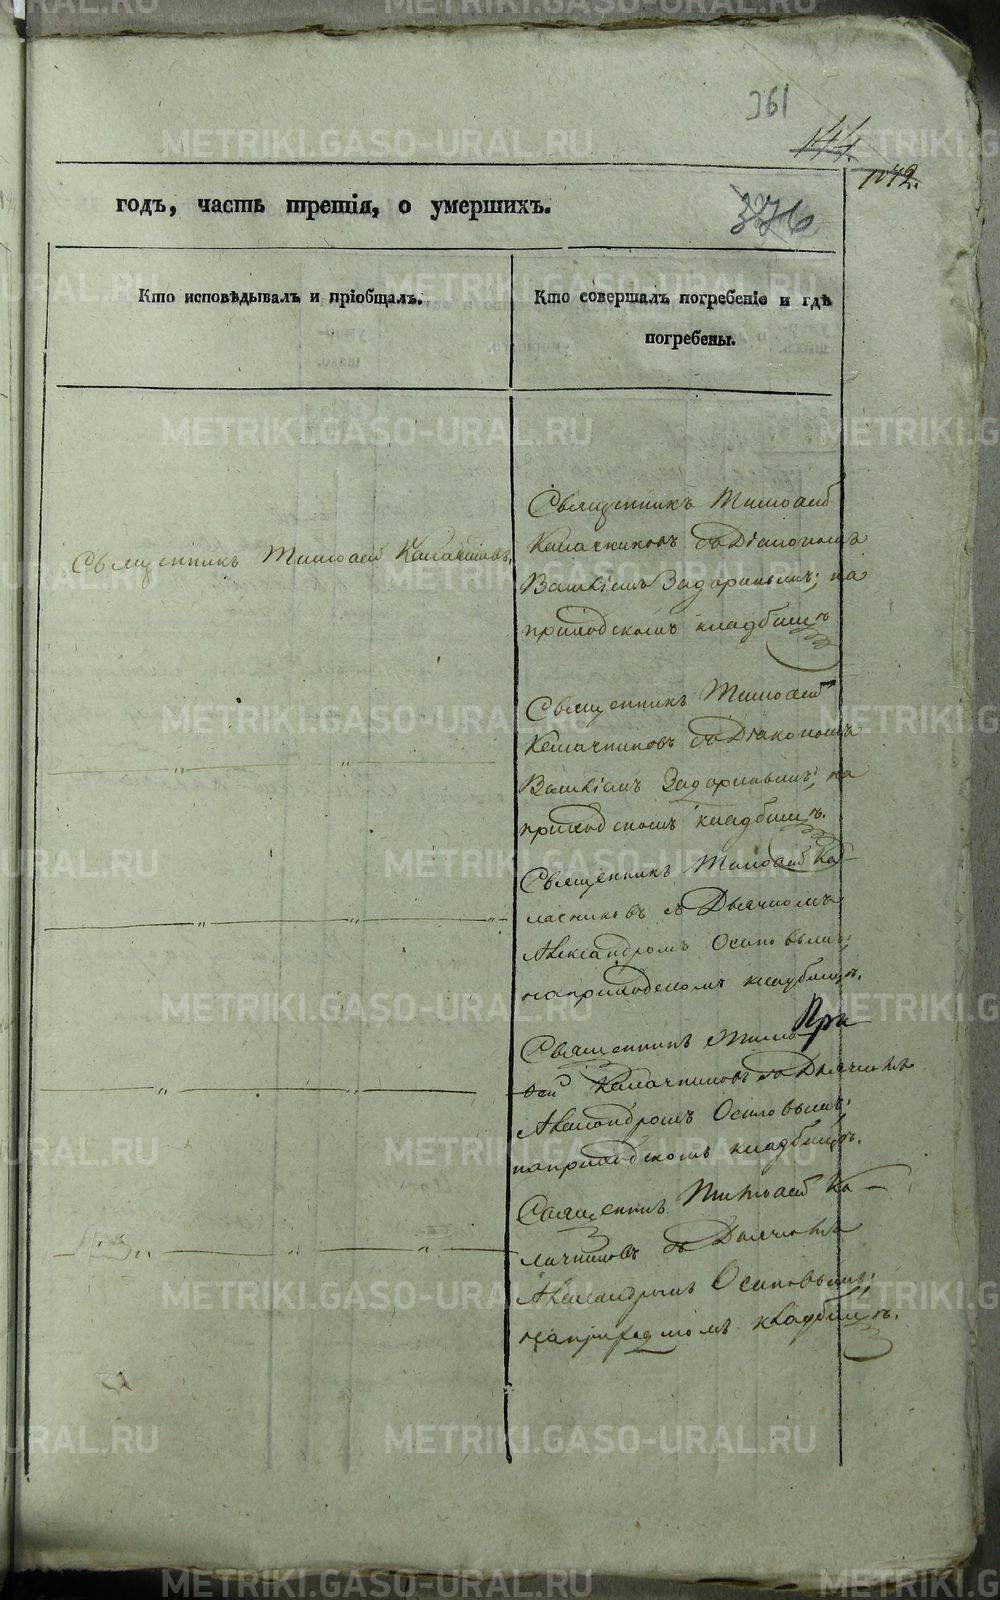 361
144.
1042.
годъ, часть третія, о умершихъ.
376
Кто исповѣдывалъ и пріобщалъ.
Кто совершалъ погребеніе и гдѣ
погребены.
Священникъ Тимоѳей
Священникъ Тимоѳей Калачниковъ.
Калачниковъ съ Діакономъ
Задоринымъ; на
приходскомъ кладбищѣ
Священникъ Тимоѳей
Калачниковъ съ Діакономъ
Задоринымъ; на
приходскомъ кладбищѣ.
Священникъ Тимоѳей Ка-
лачниковъ съ Дьячкомъ
Александромъ Осиповымъ;
на приходскомъ кладбищѣ.
Священникъ Тимо
ѳей Калачниковъ съ Дьячкомъ
Александромъ Осиповымъ;
на приходскомъ кладбищѣ.
Священник Тимоѳей Ка-
лачниковъ съ Дьячкомъ
Александромъ Осиповымъ;
на приходскомъ кладбищѣ.
METRIKI.GASO-URAL.RU